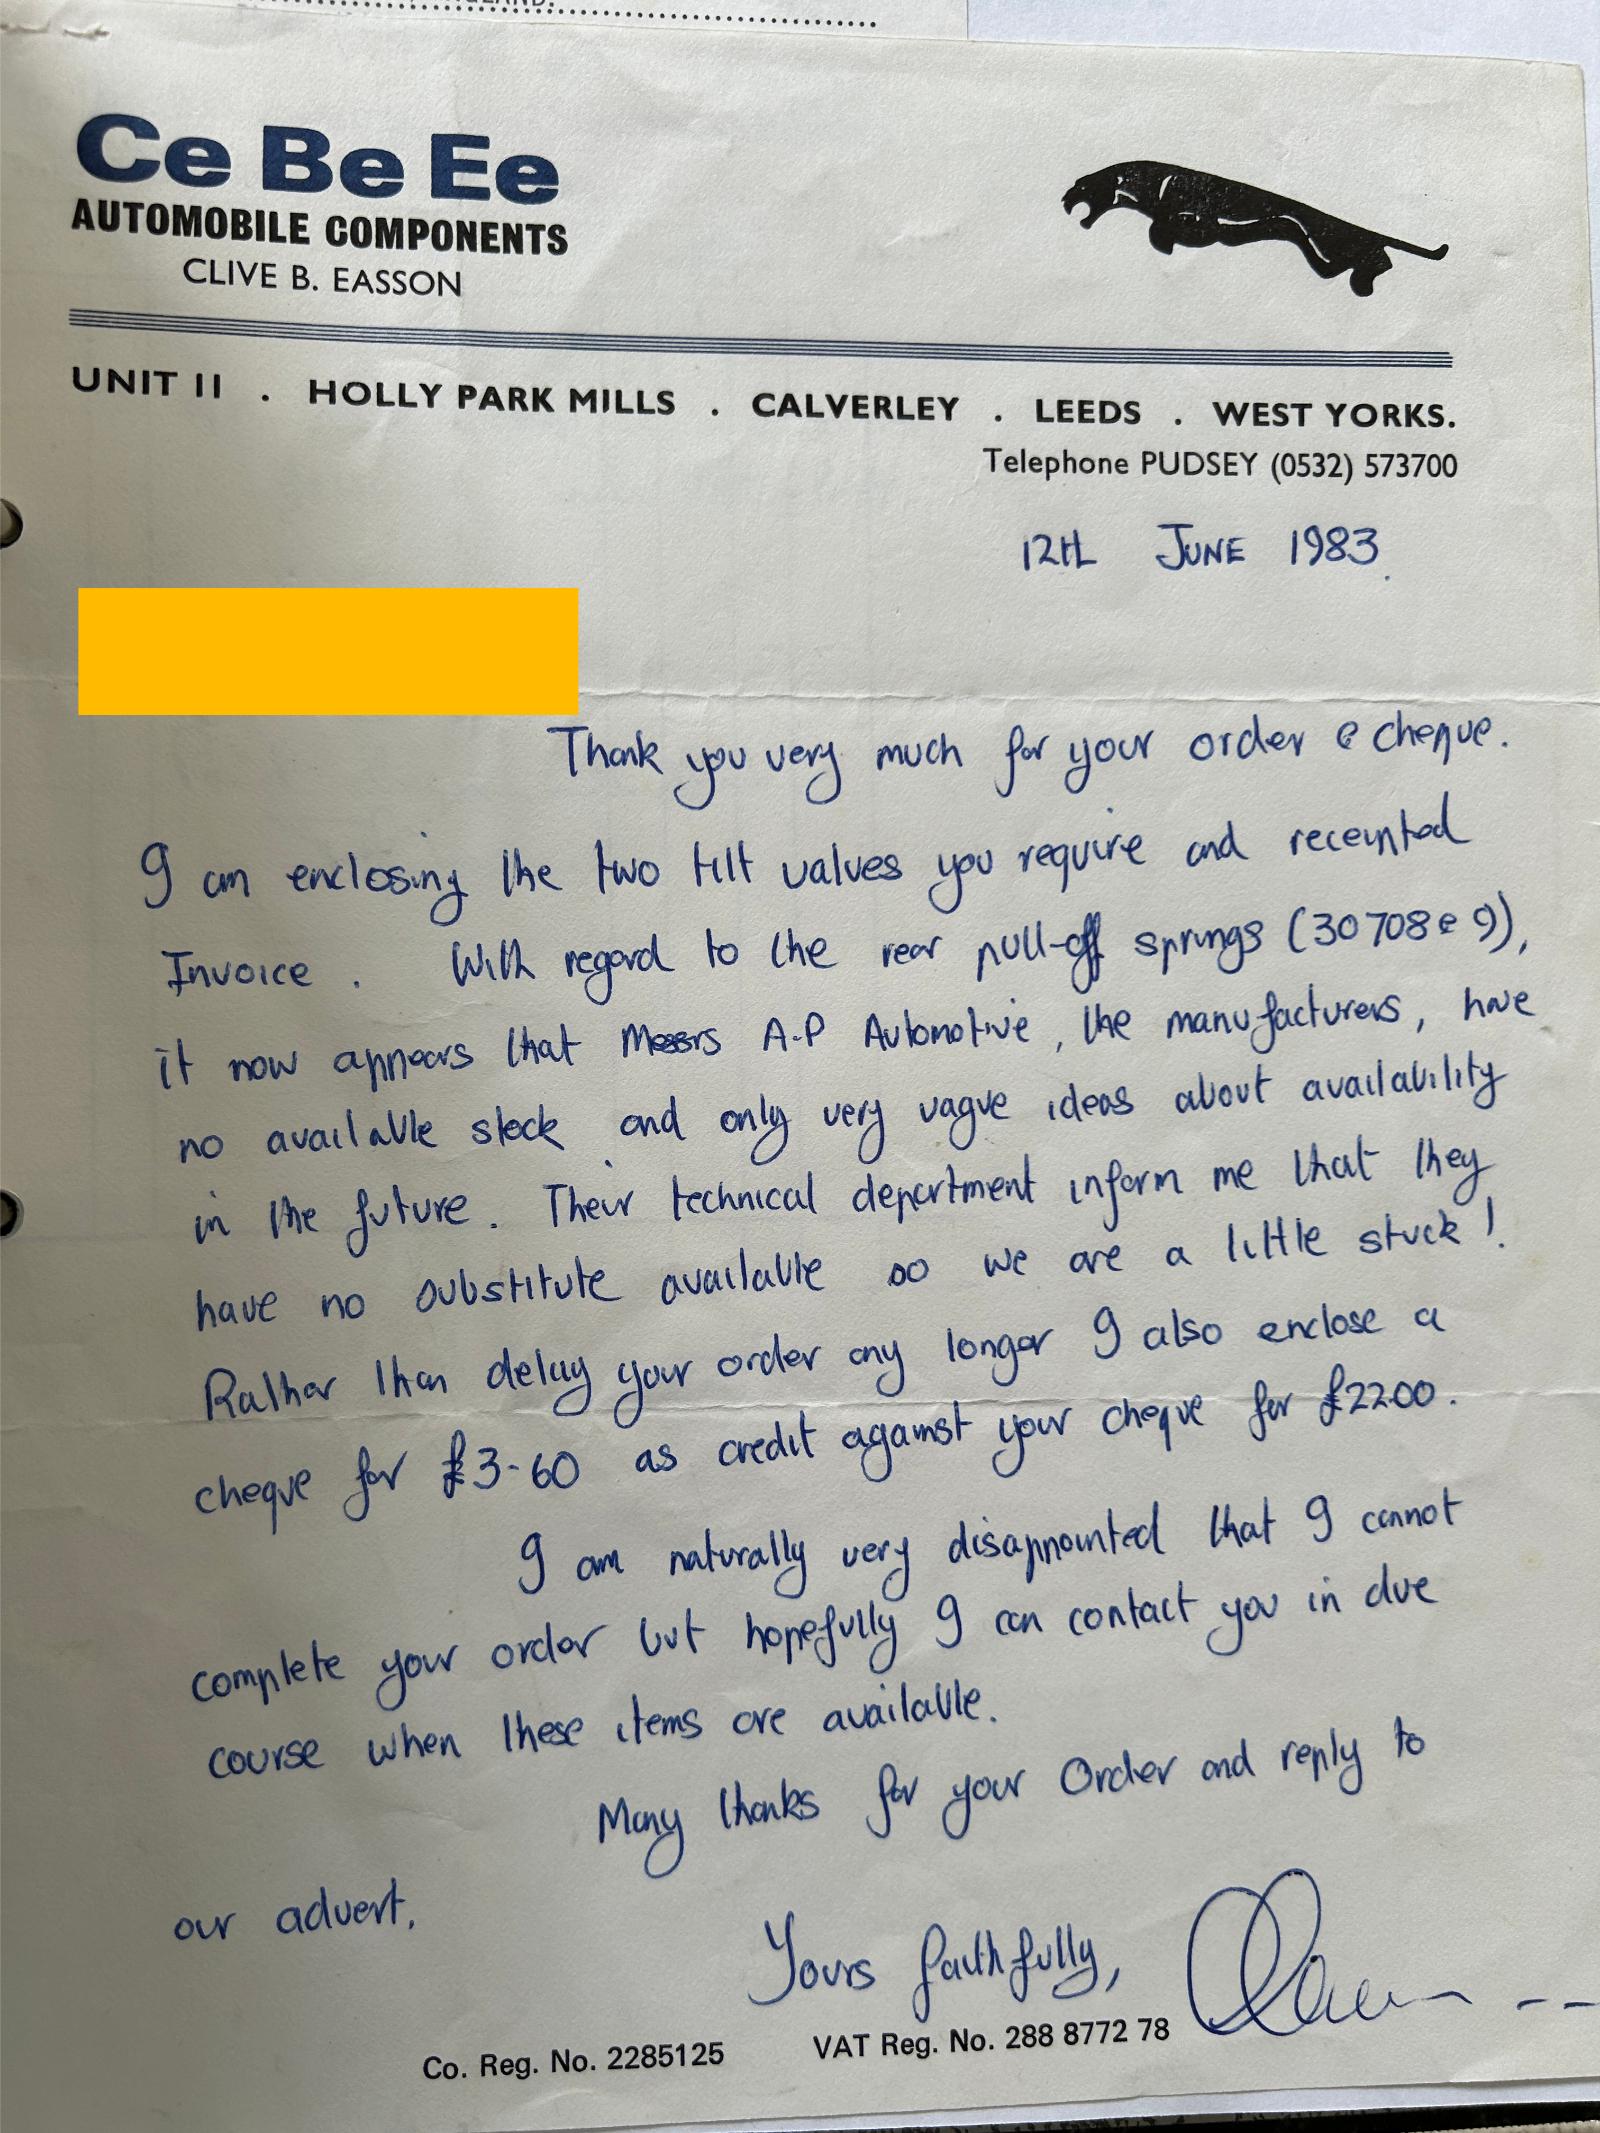 Ce Be Ee
AUTOMOBILE COMPONENTS
CLIVE B. EASSON
UNIT 11 . HOLLY PARK MILLS . CALVERLEY . LEEDS . WEST YORKS.
Telephone PUDSEY (0532) 573700
12th JUNE 1983.
Thank you very much for your order & cheque.
I am enclosing the two tilt valves you require and receipted
Invoice. With regard to the rear pull-off springs (30708 & 9),
it now appears that Messrs A.P Automotive, the manufacturers, have
no available stock and only very vague ideas about availability
in the future. Their technical department inform me that they
have no substitute available so we are a little stuck!
Rather than delay your order any longer I also enclose a
cheque for £3-60 as credit against your cheque for £22.00.
I am naturally very disappointed that I cannot
complete your order but hopefully I can contact you in due
course when these items are available.
Many thanks for your Order and reply to
our advert.
Yours faithfully,
Co. Reg. No. 2285125 VAT Reg. No. 288 8772 78